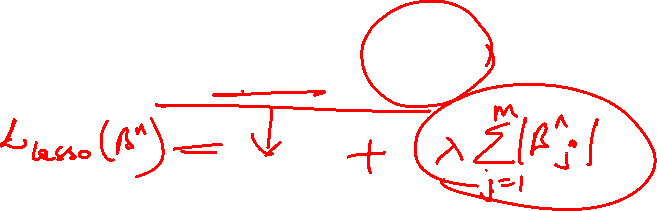 L_lasso(β^) = ↓ + λ Σ_{j=1}^{m} |β^_j|